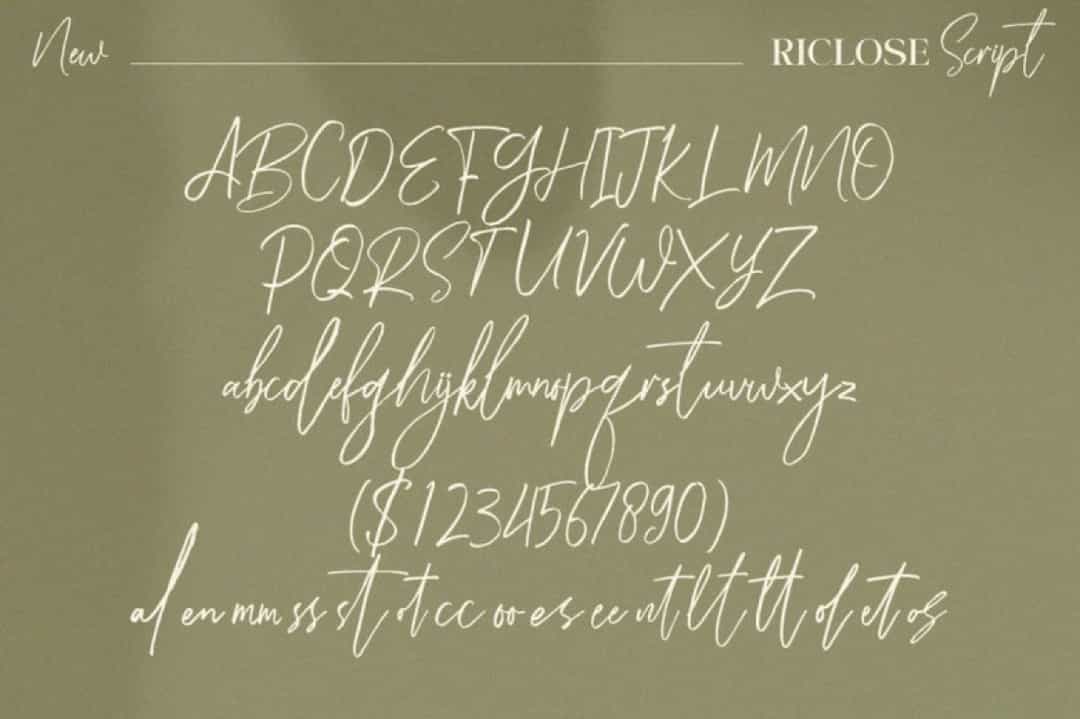 New RICLOSE Script
ABCDEFGHIJKLMNO
PQRSTUVWXYZ
abcdefghijklmnopqrstuvwxyz
($1234567890)
af en mm ss st ot cc oo es ee nt lt tt of et os